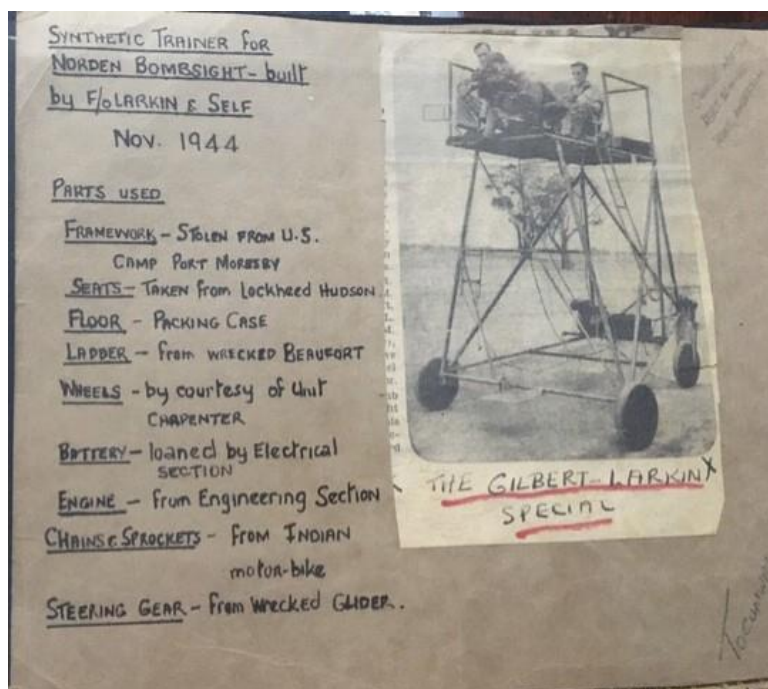 SYNTHETIC TRAINER FOR
NORDEN BOMBSIGHT - built
by F/O LARKIN & SELF
NOV. 1944
PARTS USED
FRAMEWORK - STOLEN FROM U.S.
CAMP PORT MORESBY
SEATS - TAKEN from Lockheed HUDSON
FLOOR - PACKING CASE
LADDER - from WRECKED BEAUFORT
WHEELS - by courtesy of Unit
CARPENTER
BATTERY - loaned by Electrical
SECTION
ENGINE - from Engineering Section
CHAINS & SPROCKETS - from INDIAN
motor-bike
STEERING GEAR - from wrecked GLIDER.
THE GILBERT-LARKIN X
SPECIAL